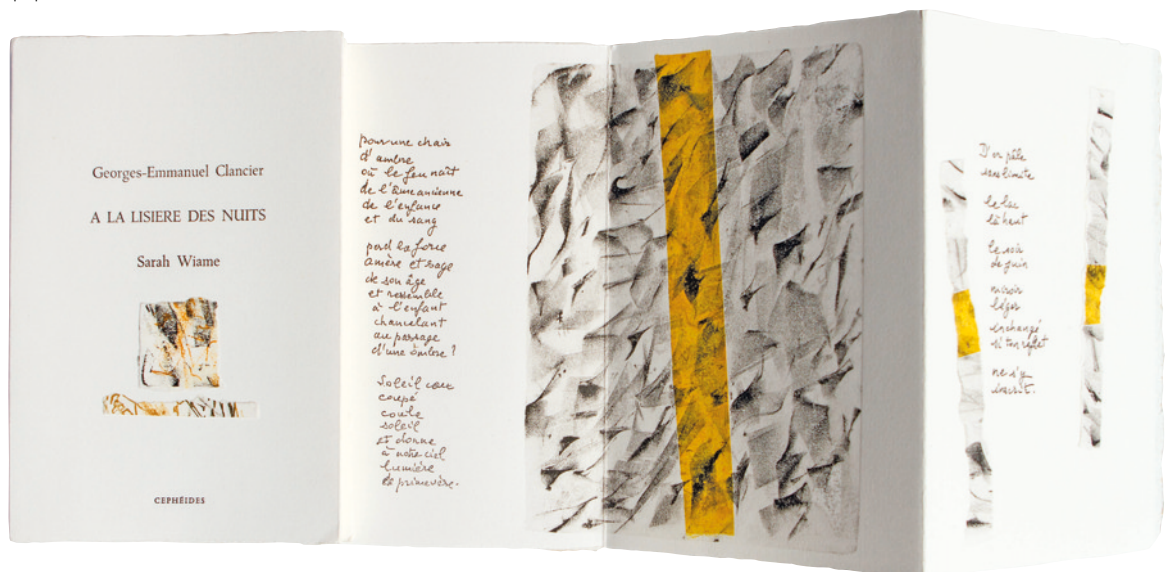 Georges-Emmanuel Clancier
A LA LISIERE DES NUITS
Sarah Wiame
CEPHÉIDES
pour une chair
d'ambre
où le feu naît
de l'âme ancienne
de l'enfance
et du sang
perd la force
amère et sage
de son âge
et ressemble
à l'enfant
chancelant
au passage
d'une ombre ?
Soleil cou
coupé
coule
soleil
et donne
à notre ciel
lumière
de primevère.
D'or pâle
sans limite
le lac
là-haut
le soir
de juin
miroir
léger
inchangé
si ton reflet
ne s'y
inscrit.